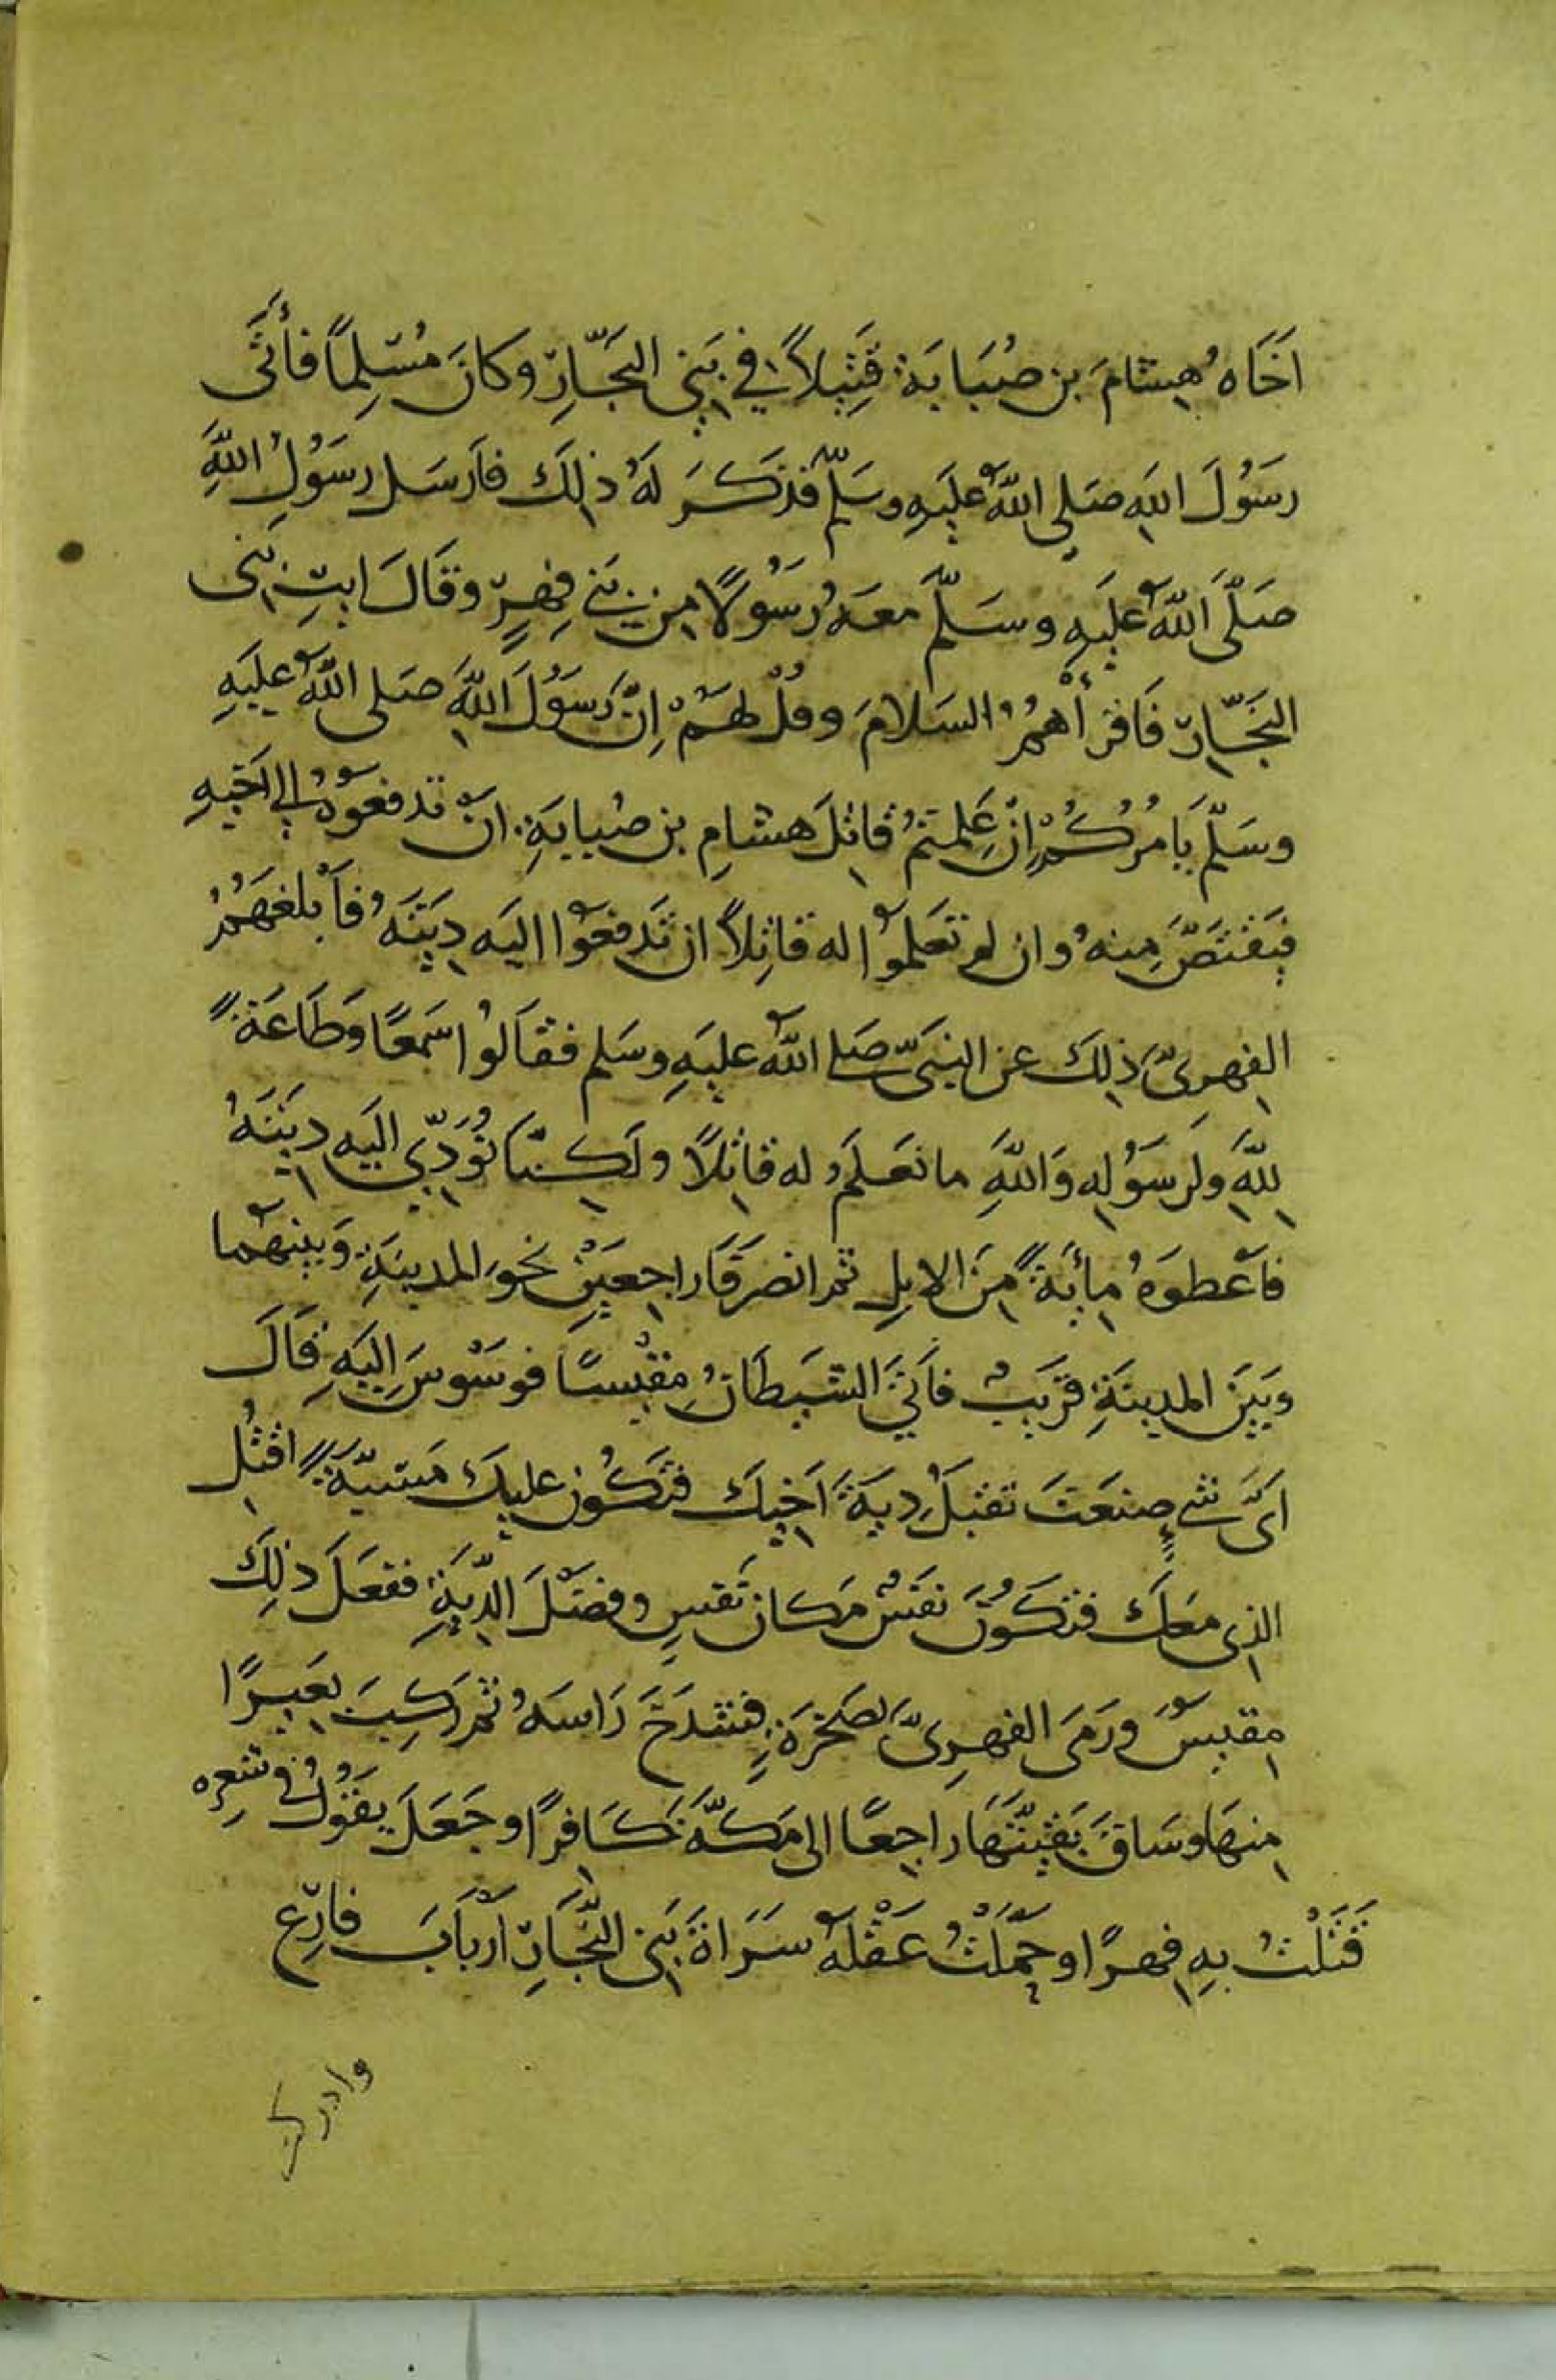 اَخَاهُ هِشَامَ بن صُبَابَة قَتِيلاً في بَنِي النَجَّارِ وكانَ مُسْلِمًا فأَتَى
رسَوُلَ اللهِ صَلى اللهُ عليَهِ وسَلّمَ فذكَرَ لَهُ ذلِكَ فاَرسَل رسَوُلُ اللهِ
صَلَّى اللهُ عليَهِ وسَلّمَ معَهُ رَسُولًا مِن بَنِي فِهِرٍ وقَالَ ايتِ بَنِى
النجَّارِ فَاقرأهُمُ السَلامَ وقُلْ لهَمُ اِنَّ رَسَوُلَ اللهِ صَلى اللهُ عليَهِ
وسَلّمَ يَامُرُكُمْ اِنْ عَلِمتمُ قاتِلَ هشامِ بن صُبابَةِ اَنْ تدفعَوُهُ الى اَخيِهِ
فيَقتَصَّ مِنهُ وان لم تعَلموُا له قاتِلاً ان تَدفعوُا اليَه دِيَتَهُ فَاَبلغَهَمُ
الفِهرىّ ذلِكَ عن النبَىّ صَلى اللهُ عليَهِ وسَلم فقاَلوُا سَمعًا وَطَاعَةً
لِلّهِ ولَرسَوُلِهِ وَاللهِ ما نعَلَمُ له قاتِلاً ولَكِنّا نُوَدِّي اليَه دِيَتَهُ
فاَعطوَهُ مِأيَةً مِنَ الابِلِ ثم انصَرَفَا راجِعَيْنِ نحوَ المدينَةِ وَبينهَما
وبَيَن المدينَةِ قَريَبٌ فاَتَى الشيَطَانُ مِقيْسًا فوسَوْسَ اِليَهِ قَالَ
اَىَّ شىءٍ صنعَتَ تقبَلُ دِيَةَ اَخِيكَ فتكَوُن عليكَ مَسَبَّةً اقتُل
الذِى معَكَ فتكَوُنَ نفَسٌ مكان نَفسٍ وفضَلَ الدِّيَةِ ففعَلَ ذلِكَ
مِقيسٌ ورَمَى الفهِرىَّ بصَخرَةٍ فشَدَخَ رَاسَهُ ثم ركِبَ بعَيِرًا
مِنهَا وسَاقَ بَقيَّتَهَا راجِعًا الى مَكّةَ كَافِرًا وجَعَلَ يقَوُلُ في شعِره
قَتَلْتُ بِهِ فِهرًا وحَمَّلْتُ عَقْلَهُ سَرَاةَ بَنِى النَّجَارِ اَرْبَابَ فارِع
وادركت